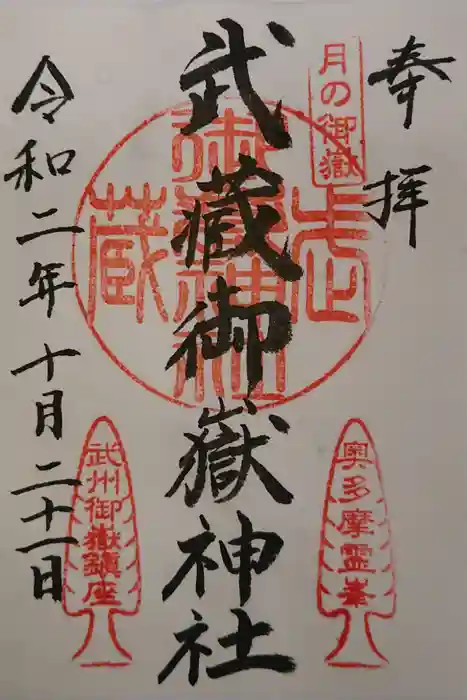 奉拝
月の御嶽
武蔵御嶽神社
武蔵御嶽神社
奥多摩霊峯
武州御嶽鎮座
令和二年十月二十一日